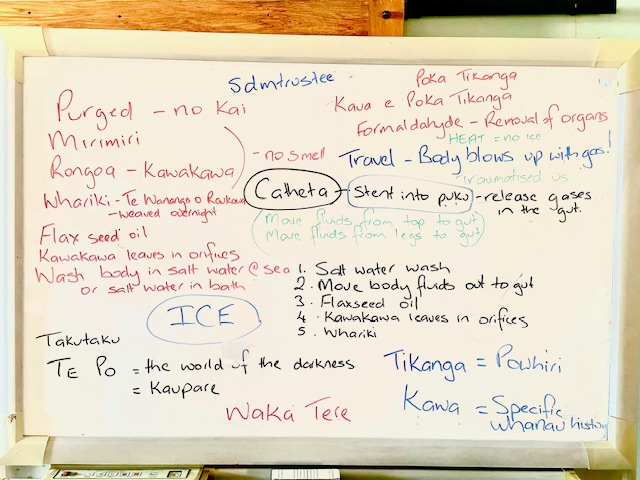 Sdmtrustee
Poka Tikanga
Kaua e Poka Tikanga
Formaldahyde - Removal of organs
HEAT = no ice
Travel - Body blows up with gas!
traumatised us
Purged - no Kai
Mirimiri
Rongoa - Kawakawa
- no smell
Whariki - Te Wananga o Raukawa
- weaved overnight
Catheta - Stent into puku - release gases
in the gut.
Move fluids from top to gut
Move fluids from legs to gut
Flax seed oil
Kawakawa leaves in orifices
Wash body in salt water @ sea
or salt water in bath
1. Salt water wash
2. Move body fluids out to gut
3. Flaxseed oil
4. Kawakawa leaves in orifices
5. Whariki
ICE
Takutaku
TE PO = the world of the darkness
= Kaupare
Waka Tere
Tikanga = Powhiri
Kawa = Specific
whanau history